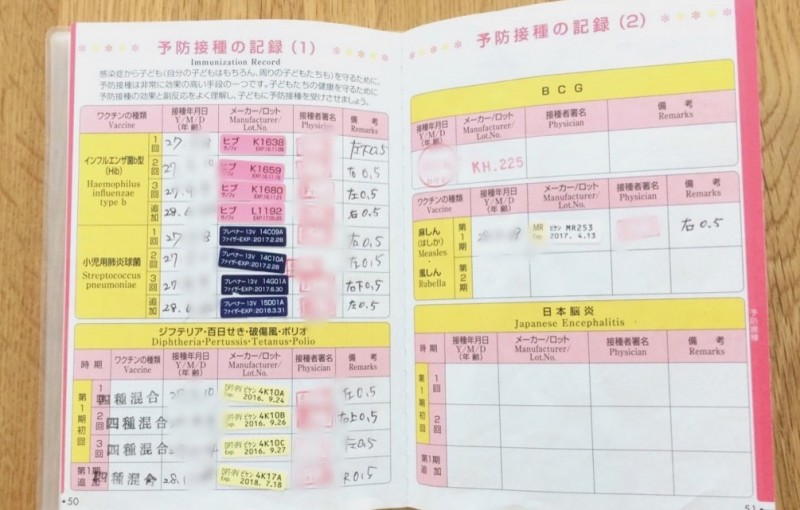 予防接種の記録(1)
Immunization Record
感染症から子ども(自分の子どもはもちろん、周りの子どもたちも)を守るために、
予防接種は非常に効果の高い手段の一つです。子どもたちの健康を守るために
予防接種の効果と副反応をよく理解し、子どもに予防接種を受けさせましょう。
ワクチンの種類 接種年月日 メーカー/ロット 接種者署名 備考
Vaccine Y/M/D Manufacturer/ Physician Remarks
(年齢) Lot.No.
インフルエンザ菌b型
(Hib)
Haemophilus
influenzae
type b
1回 27 ヒブ K1638 左下0.5
2回 27 ヒブ K1659 右0.5
3回 27. ヒブ K1680 左0.5
追加 28. ヒブ L1192 右0.5
小児用肺炎球菌
Streptococcus
pneumoniae
1回 27 プレベナー 13V 14C09A 右0.5
ファイザーEXP:2017.2.28
2回 27 プレベナー 13V 14C10A 左0.5
ファイザーEXP:2017.2.28
3回 27 プレベナー 13V 14G01A 右下0.5
ファイザーEXP:2017.6.30
追加 28. プレベナー 13V 15D01A 左0.5
ファイザーEXP:2018.3.31
ジフテリア・百日せき・破傷風・ポリオ
Diphtheria・Pertussis・Tetanus・Polio
時期 ワクチンの種類 接種年月日 メーカー/ロット 接種者署名 備考
Vaccine Y/M/D Manufacturer/ Physician Remarks
(年齢) Lot.No.
第1期初回
1回 四種混合 27 10 ビケン 4K10A 左0.5
Exp. 2016. 9.24
2回 四種混合 ビケン 4K10B 右上0.5
Exp. 2016. 9.26
3回 四種混合 ビケン 4K10C 左0.5
Exp. 2016. 9.27
第1期追加 四種混合 28. ビケン 4K17A R0.5
Exp. 2018. 7.18
50
予防接種の記録(2)
BCG
接種年月日 メーカー/ロット 接種者署名 備考
Y/M/D Manufacturer/ Physician Remarks
(年齢) Lot.No.
KH.225
ワクチンの種類 接種年月日 メーカー/ロット 接種者署名 備考
Vaccine Y/M/D Manufacturer/ Physician Remarks
(年齢) Lot.No.
麻しん
(はしか)
Measles
・
風しん
Rubella
第1期 MR ビケン MR253 右0.5
Exp. 2017. 4.13
第2期
日本脳炎
Japanese Encephalitis
時期 接種年月日 メーカー/ロット 接種者署名 備考
Y/M/D Manufacturer/ Physician Remarks
(年齢) Lot.No.
第1期初回
1回
2回
第1期追加
予防接種
51